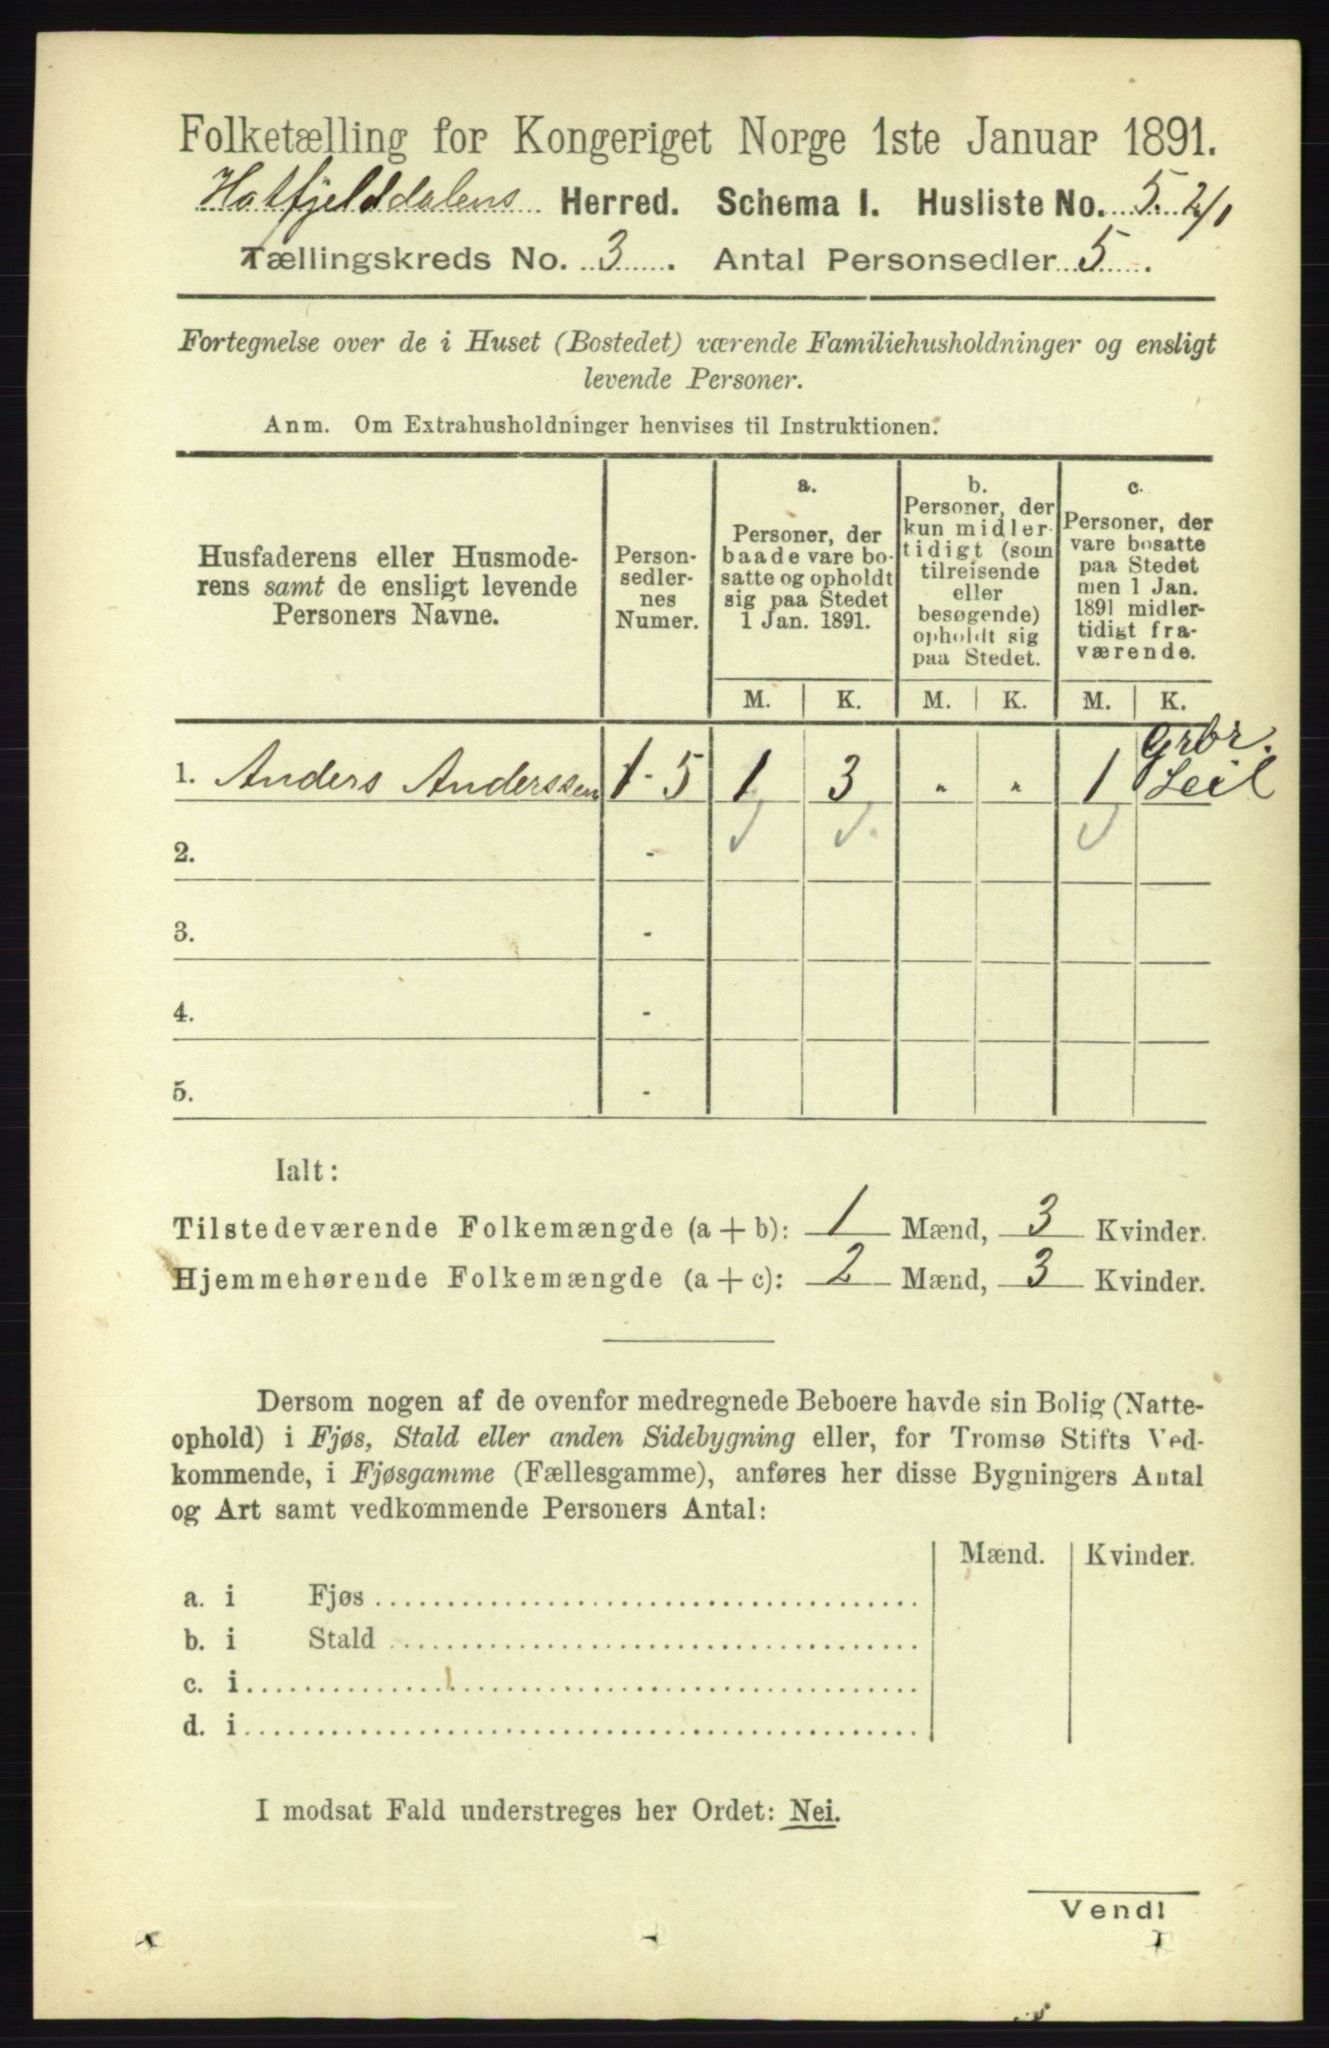 Folketælling for Kongeriget Norge 1ste Januar 1891.
Hatfjelddalens Herred. Schema I. Husliste No. 5. 2/1
Tællingskreds No. 3. Antal Personsedler 5.
Fortegnelse over de i Huset (Bostedet) værende Familiehusholdninger og ensligt
levende Personer.
Anm. Om Extrahusholdninger henvises til Instruktionen.
Husfaderens eller Husmode-
rens samt de ensligt levende
Personers Navne.
Person-
sedler-
nes
Numer.
a.
Personer, der
baade vare bo-
satte og opholdt
sig paa Stedet
1 Jan. 1891.
b.
Personer, der
kun midler-
tidigt (som
tilreisende
eller
besøgende)
opholdt sig
paa Stedet.
c.
Personer, der
vare bosatte
paa Stedet
men 1 Jan.
1891 midler-
tidigt fra-
værende.
M. K. M. K. M. K.
Grbr.
1. Anders Anderssen 1 - 5 1 3 " " 1 Leil
2. -
3. -
4. -
5. -
Ialt:
Tilstedeværende Folkemængde (a + b): 1 Mænd, 3 Kvinder.
Hjemmehørende Folkemængde (a + c): 2 Mænd, 3 Kvinder.
Dersom nogen af de ovenfor medregnede Beboere havde sin Bolig (Natte-
ophold) i Fjøs, Stald eller anden Sidebygning eller, for Tromsø Stifts Ved-
kommende, i Fjøsgamme (Fællesgamme), anføres her disse Bygningers Antal
og Art samt vedkommende Personers Antal:
Mænd. Kvinder.
a. i Fjøs
b. i Stald
c. i
d. i
I modsat Fald understreges her Ordet: Nei.
Vend!